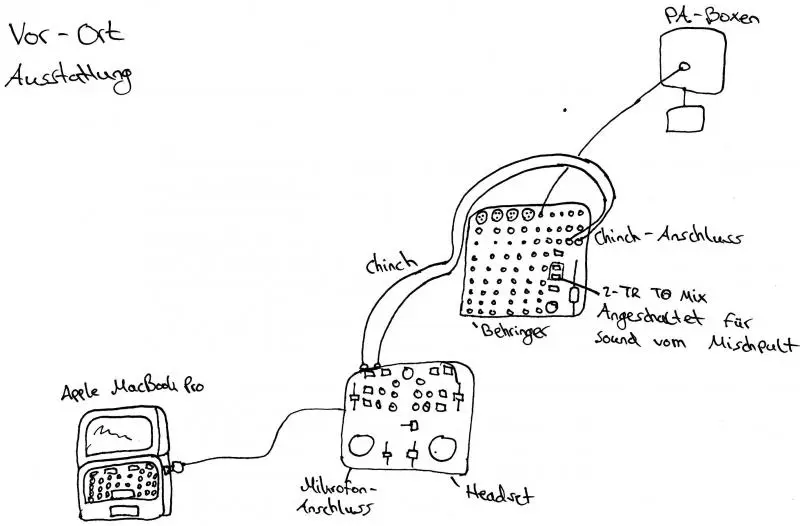 Vor-Ort
Ausstattung
PA-Boxen
Chinch
Chinch-Anschluss
2-TR TO Mix
Angeschaltet für
Sound vom Mischpult
Behringer
Apple MacBook Pro
Mikrofon-
Anschluss
Headset